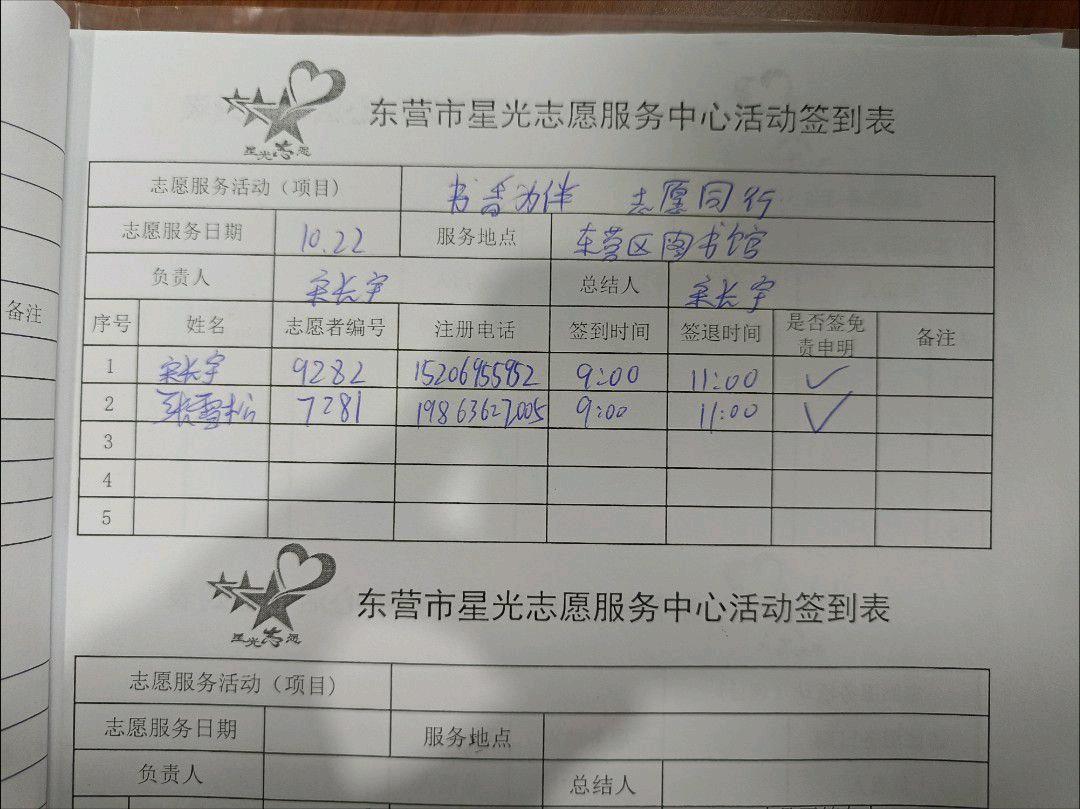 星光志愿
东营市星光志愿服务中心活动签到表
志愿服务活动（项目） 书香为伴 志愿同行
志愿服务日期 10.22 服务地点 东营区图书馆
负责人 宋长宇 总结人 宋长宇
备注
序号 姓名 志愿者编号 注册电话 签到时间 签退时间 是否签免责申明 备注
1 宋长宇 9282 15206955952 9:00 11:00 ✓
2 张雪松 7281 19863627005 9:00 11:00 ✓
3
4
5
星光志愿
东营市星光志愿服务中心活动签到表
志愿服务活动（项目）
志愿服务日期 服务地点
负责人 总结人